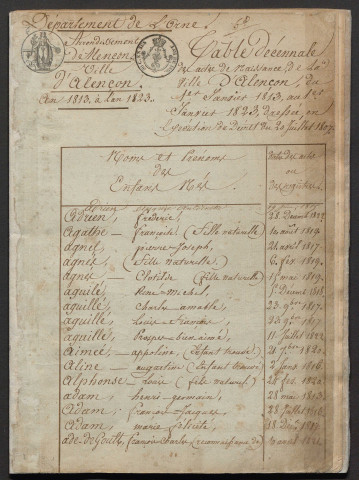 Département de L'orne.
Arrondissement
D'Alençon
Ville
D'Alençon.
An 1813, à l'an 1823.
Table Décennale
des actes de Naissance de la
Ville D'Alençon, du
1er Janvier 1813, au 1er
Janvier 1823, dressée, en
Exécution du Décret du 20 Juillet 1807.
Noms et Prénoms
des
Enfans Nés.
Dates des actes
ou
des registres
adrien
Adrien, fréderic,
Agathe — françoise (fille naturelle) août 1819.
agnel, pierre-Joseph, 21 avril 1817.
agnès (fille naturelle) 6 fév. 1819.
agnès — Clotilde (fille naturelle) 15 mai 1819.
aguillé, René-Michel, 1818.
aguillé, charles amable, 23 9bre 1817.
aguillé, Louis-françois, 1817.
aguillé, bien aimé, 11 juillet 1822.
Aimée — appoline, (Enfant trouvée) 21 1820.
Aline — augustine (Enfant trouvée) 2 janv. 1816.
Alphonse — Louis (fille naturel) 28 fév. 1820.
adam, henri-germain, 28 mai 1813.
Adam, françois-Jacques, 28 juillet 1816.
Adam, marie félicité, 18 1817.
ade-de-Goutt, françois charles (reconnaissance de) août